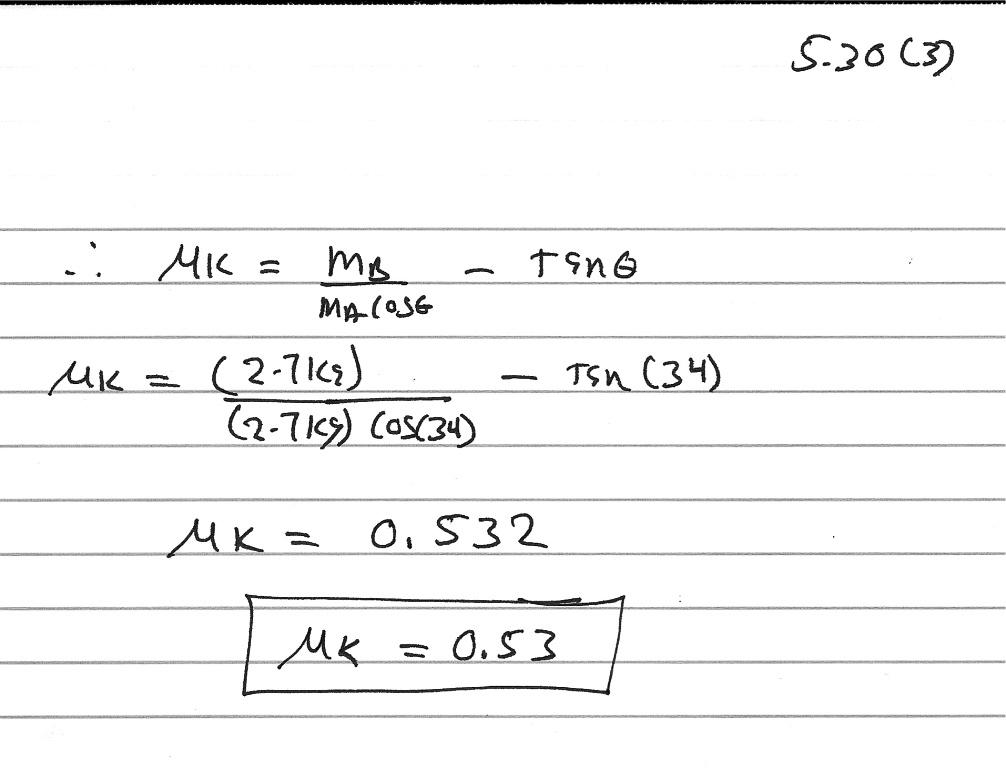 5.30 (3)
∴ μK = mB / mA cosθ - tanθ
μK = (2.7kg) / (2.7kg) cos(34) - Tan (34)
μK = 0.532
μK = 0.53